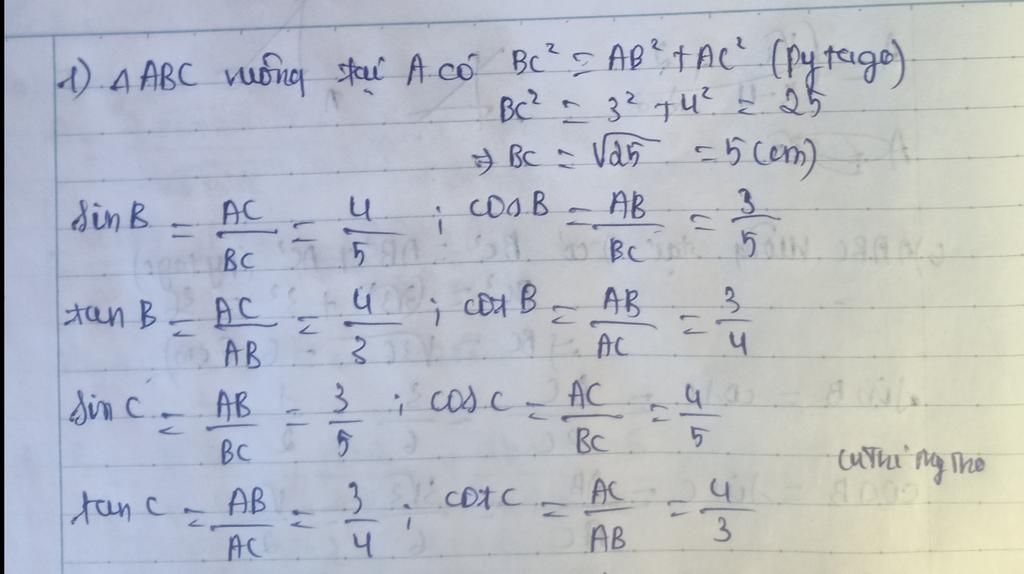 1) △ABC vuông tại A có BC² = AB² + AC² (Pytago)
BC² = 3² + 4² = 25
⇒ BC = √25 = 5 (cm)
sin B = AC/BC = 4/5 ; cos B = AB/BC = 3/5
tan B = AC/AB = 4/3 ; cot B = AB/AC = 3/4
sin C = AB/BC = 3/5 ; cos C = AC/BC = 4/5
tan C = AB/AC = 3/4 ; cot C = AC/AB = 4/3